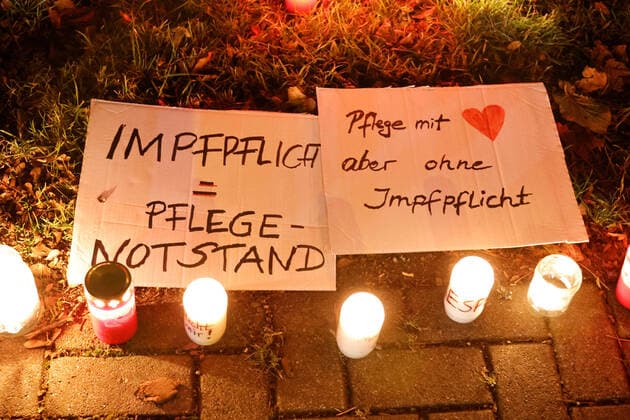 IMPFPFLICHT
=
PFLEGE-
NOTSTAND
Pflege mit ❤
aber ohne
Impfpflicht